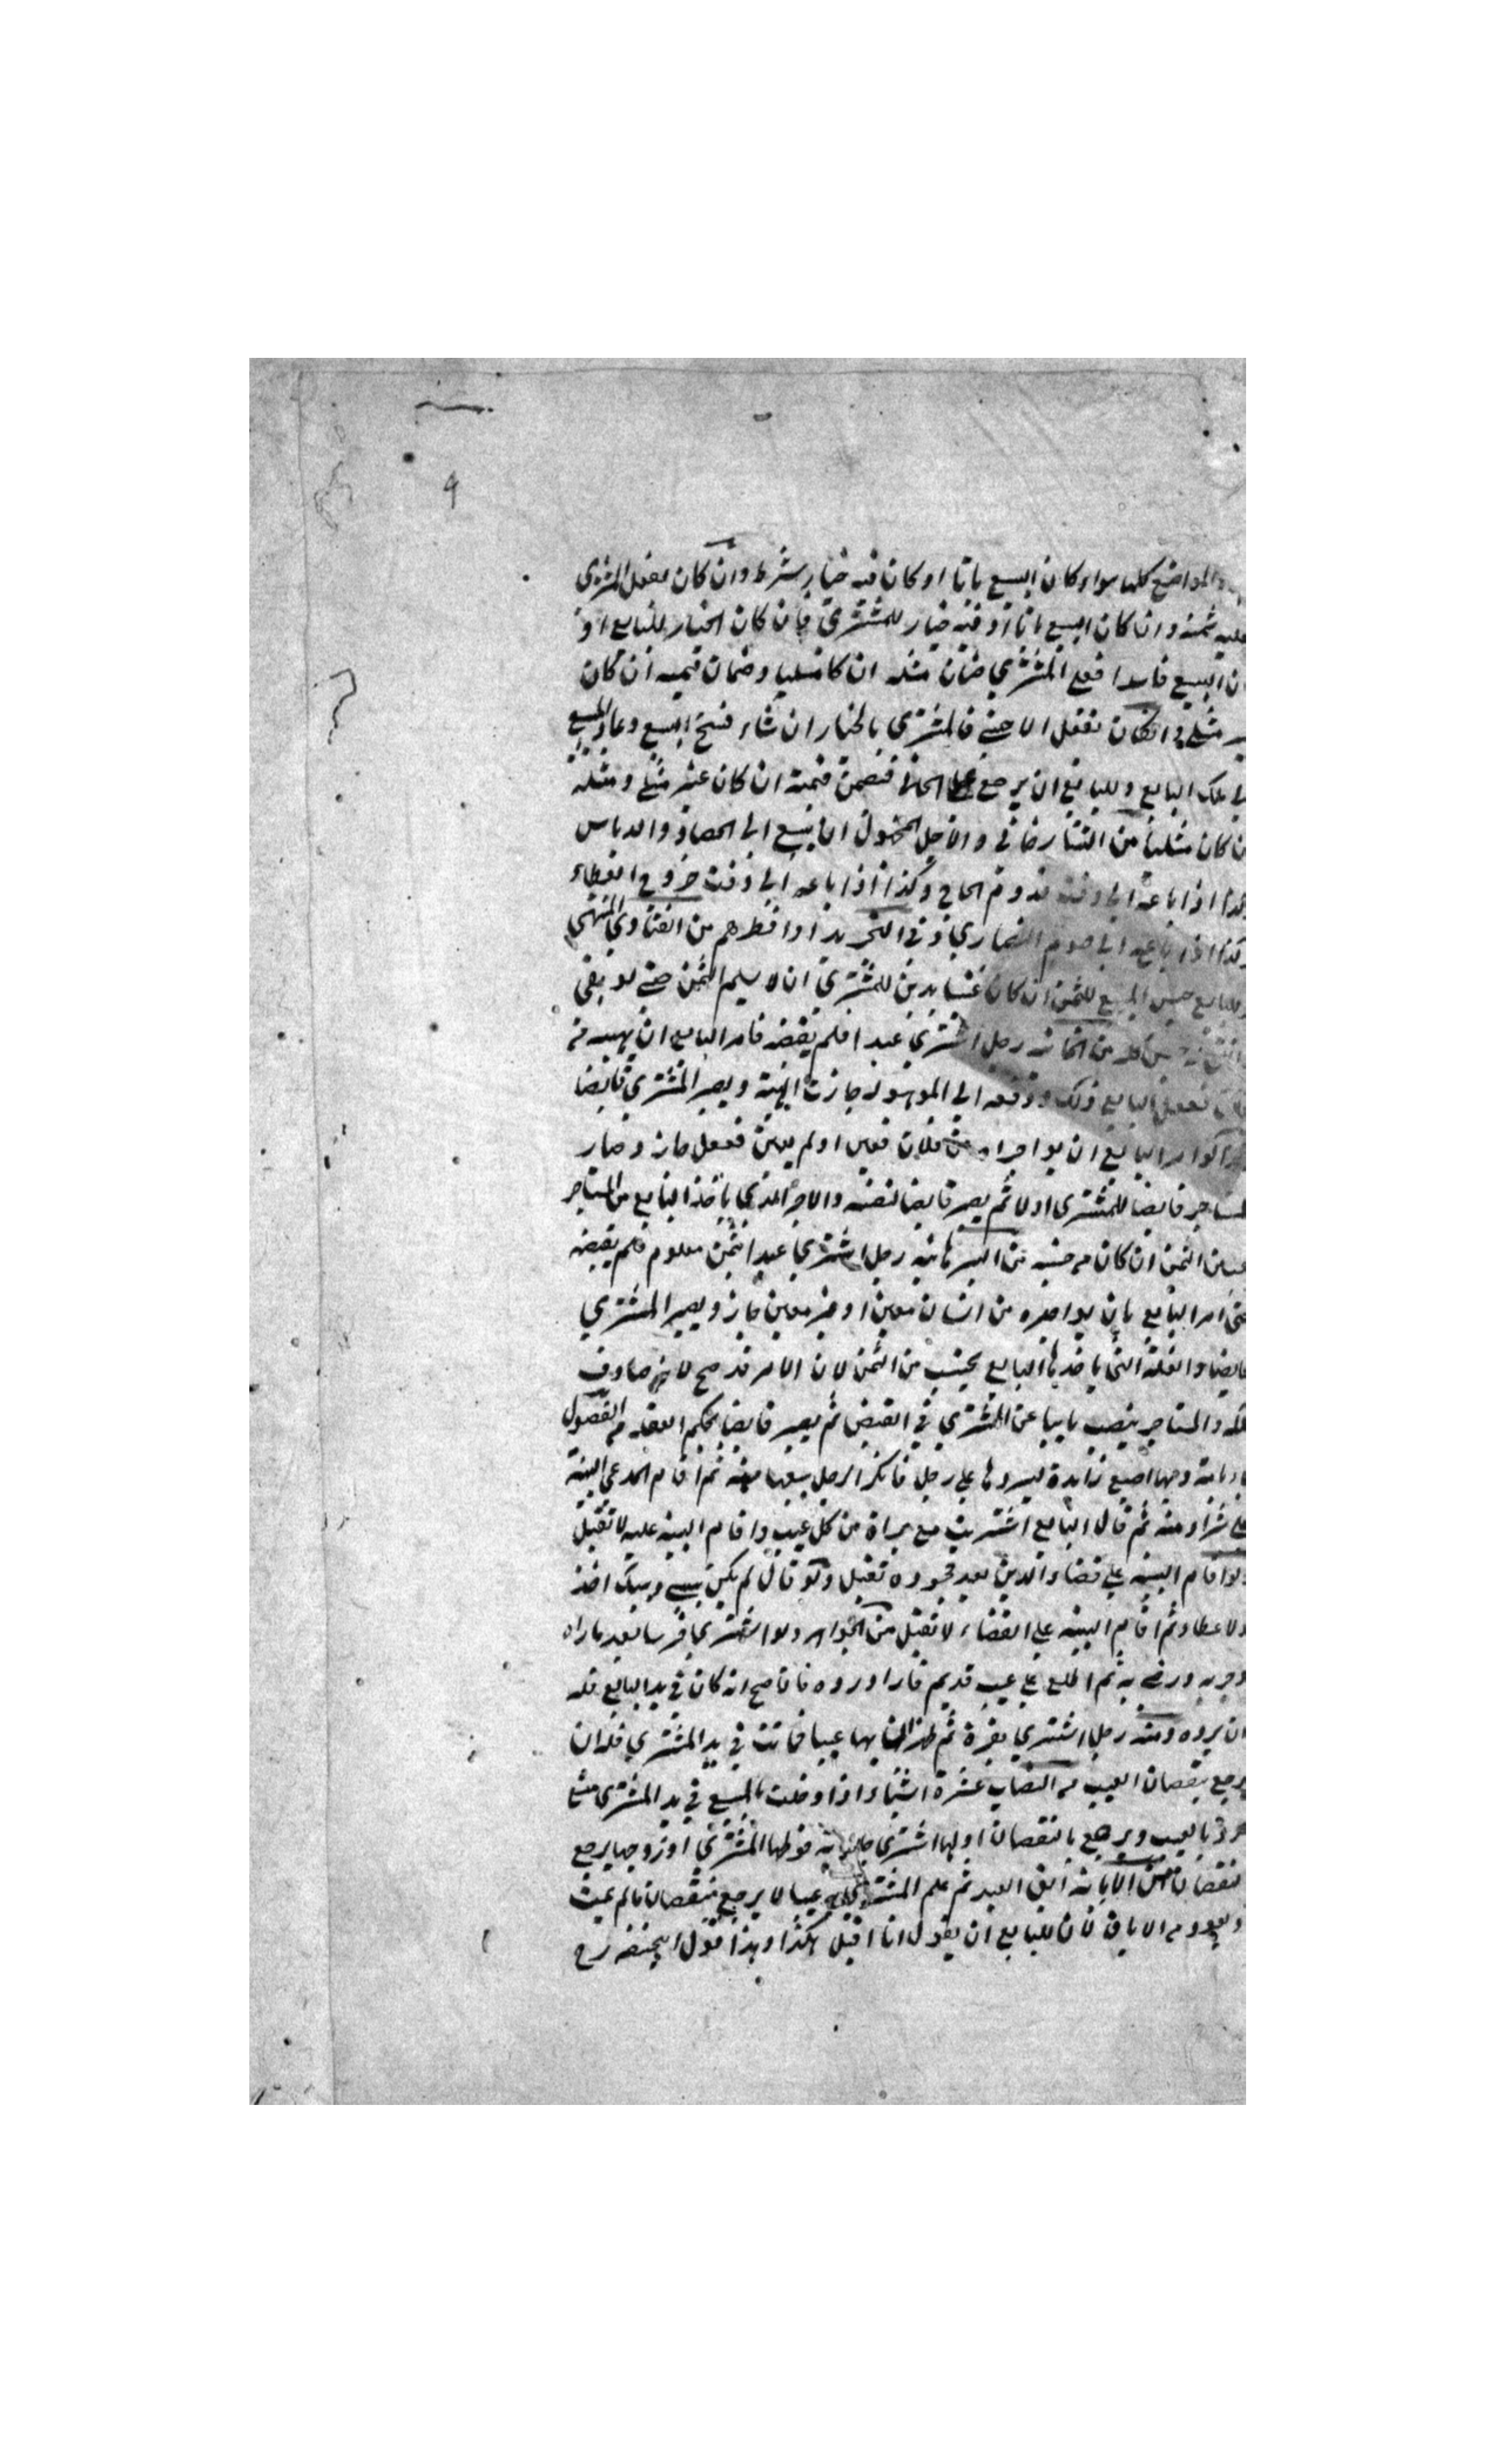 ٩
المواضع كلها سواء كان البيع باتا او كان فيه خيار شرط وان كان بفعل المشتري
عليه ثمنه وان كان البيع باتا او فيه خيار للمشتري فان كان الخيار للبايع او
ان البيع فاسدا فعلى المشتري ضمان مثله ان كان مثليا وضمان قيمته ان كان
مثلي وان كان بفعل الاجنبي فالمشتري بالخيار ان شاء فسخ البيع وعاد المبيع
الى ملك البايع وللبايع ان يرجع على الجاني فيضمن قيمته ان كان غير مثلي ومثله
ن كان مثليا من التتارخاني والاجل المجهول ان يبيع الى الحصاد والدياس
كذا اذا باعه الى وقت قدوم الحاج وكذا اذا باعه الى وقت خروج العطاء
وكذا اذا باعه الى صوم النصارى وفي التجريد او افطرهم من الفتاوى
وللبايع حبس المبيع للثمن ان كان للمشتري ان لا يسلم الثمن حتى لو بقي
من الخانية رجل اشترى عبدا فلم يقبضه فامر البايع ان يهبه من
فلان ففعل البايع ذلك ودفعه الى الموهوب له جازت الهبة ويصير المشتري قابضا
وكذا لو امر البايع ان يواجره من فلان فعين او لم يعين ففعل جاز وصار
المستاجر قابضا للمشتري اولا ثم يصير قابضا لنفسه والاجر الذي ياخذ البايع من المستاجر
الثمن ان كان من جنسه من البرهانية رجل اشترى عبدا بثمن معلوم فلم يقبضه
حتى امر البايع بان يواجره من انسان معين او غير معين جاز ويصير المشتري
قابضا والغلة التي ياخذها البايع يحتسب من الثمن لان الامر قد صح لانه صادف
ملكه والمستاجر ينصب نايبا عن المشتري في القبض ثم يصير قابضا بحكم العقد من الفصول
وبها اصبع زايدة ليردها على رجل فانكر الرجل بيعها منه ثم اقام المدعي البينة
على شراؤه منه ثم قال البايع اشتريت مع براة من كل عيب واقام البينة عليه لا تقبل
ولو اقام البينة على قضاء الدين بعد جحوده تقبل ولو قال لم يكن بيني وبينك اخذ
ولا عطاء ثم اقام البينة على القضاء لا تقبل من الجواهر ولو اشترى فرسا بعد ما راه
وجربه ورضي به ثم اطلع على عيب قديم فاراد رده فان صح انه كان في يد البايع فله
ان يرده ومنه رجل اشترى بقرة ثم ظهر ان بها عيبا فماتت في يد المشتري فله ان
يرجع بنقصان العيب من النصاب عشرة اشياء اذا وجدت بالمبيع في يد المشتري
بالعيب ويرجع بالنقصان اولها اشترى جارية فوطئها المشتري او زوجها يرجع
نقصان ابق العبد ثم علم المشتري به عيبا لا يرجع بنقصان ما لم يمت
ويعود من الاباق لان للبايع ان يقول انا اقبل هكذا وهذا قول ابي حنيفة رح